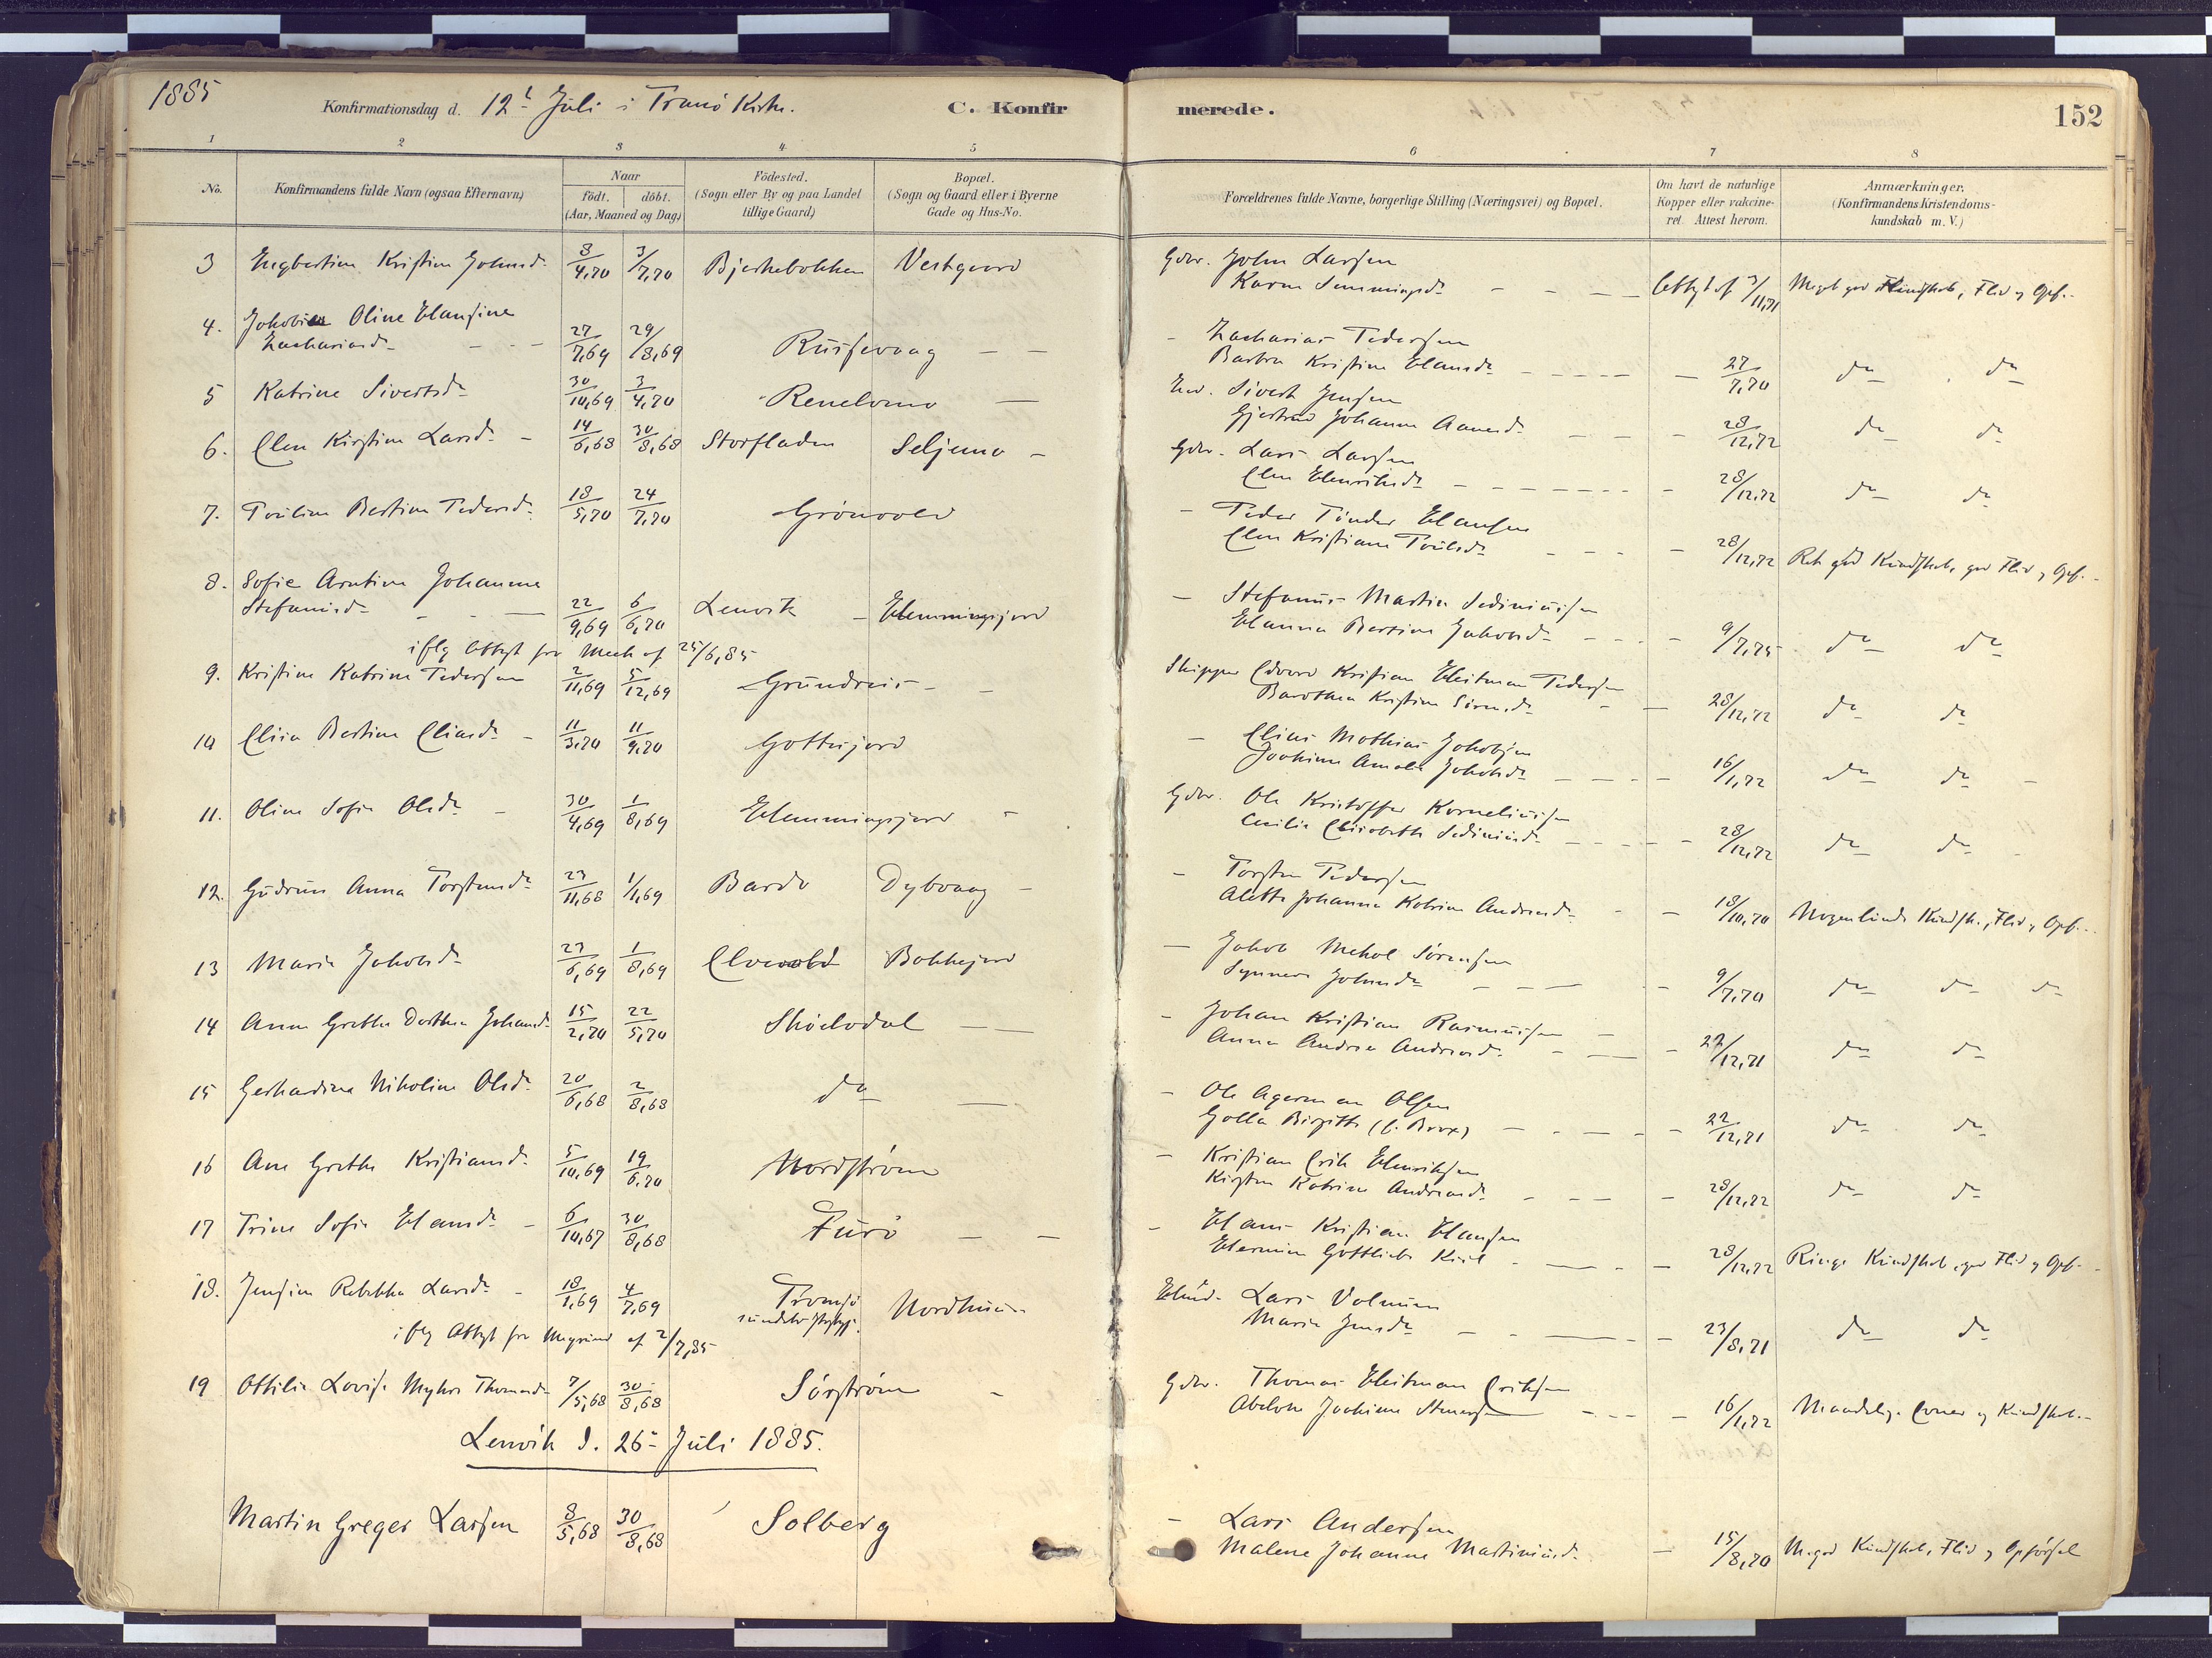 1885
Konfirmationsdag d. 12t Juli i Tranö Kirke.
C. Konfirmerede.
152
1 2 3 4 5 6 7 8
No.
Konfirmandens fulde Navn (ogsaa Efternavn)
Naar
födt. döbt.
(Aar, Maaned og Dag)
Födested.
(Sogn eller By og paa Landet
tillige Gaard)
Bopæl.
(Sogn og Gaard eller i Byerne
Gade og Hus-No.
Forældrenes fulde Navne, borgerlige Stilling (Næringsvei) og Bopæl.
Om havt de naturlige
Kopper eller vakcine-
ret. Attest herom.
Anmærkninger.
(Konfirmandens Kristendoms-
kundskab m. V.)
3 Engbertine Kristine Johnsd. 8/4,70 3/7,70 Bjerkebakken Vestgaard Gdbr. John Larsen
Karen Hemmingsd. Attest af 3/11,71 Meget god Kundskab, Flid og Opf.
4. Jakobine Oline Hansine
Zachariasd. 27/7,69 29/8,69 Russevaag Zacharias Pedersen
Barbra Kristine Hansd. 27/7,70 do do
5 Katrine Sivertsd. 30/10,69 3/4,70 Renelvmo Sivert Jensen
Gjertrud Johanna Aanesd. 28/12,72 do do
6. Elen Kirstine Larsd. 14/6,68 30/8,68 Storfladen Seljemo Gdbr. Lars Larsen
Elen Henriksd. 28/12,72 do do
7. Pauline Bertine Pedersd. 18/5,70 24/7,70 Grönvold Peder Tönder Hansen
Elen Kristiane Paulsd. 28/12,72 Ret god Kundskab, god Flid og Opf.
8. Sofie Arntine Johanna
Stefanusd. 22/9,69 6/6,70 Lenvik Hemmingsjord Stefanus Martin Sediniusen
Hanna Bertine Jakobsd. 9/7,75 do do
iflg Attest fra Meek af 25/6,85
9. Kristine Katrine Pedersen 2/11,69 5/12,69 Grundreis Skipper Edvard Kristian Heitman Pedersen
Barothea Kristine Sörensd. 28/12,72 do do
10 Elisa Bertine Eliasd. 11/3,70 11/9,70 Gottesjord Elias Mathias Jakobsen
Joakime Amalie Jakobsd. 16/1,72 do do
11. Oline Sofie Olsd. 30/4,69 1/8,69 Hemmingsjord Gdbr. Ole Kristoffer Korneliusen
Cecilie Elisabeth Sediniusd. 28/12,72 do do
12. Gudrun Anna Torstensd. 23/11,68 1/1,69 Bardo Dybvaag Torsten Pedersen
Alette Johanna Katrine Andreasd. 18/10,70 Nogenlunde Kundsk., Flid og Opf.
13 Marie Jakobsd. 27/6,69 1/8,69 Elvevold Bakkejord Jakob Mehol Sörensen
Synneve Johnsd. 9/7,70 do do do
14 Anne Grethe Dorthea Johansd. 15/2,70 22/5,70 Sköelvdal Johan Kristian Rasmussen
Anna Andrea Andreasd. 27/12,71 do do
15 Gerhardine Nikoline Olsd. 20/6,68 2/8,68 do Ole Agerman Olsen
Golla Birgitte (f. Brox) 22/12,71 do do
16 Ane Grethe Kristiansd. 5/10,69 19/6,70 Nordström Kristian Erik Henriksen
Kirsten Katrine Andreasd. 28/12,72 do do
17 Trine Sofie Hansd. 6/10,67 30/8,68 Furö Hans Kristian Hansen
Hermine Gottliebe Kiil 28/12,72 Ringe Kundskab, god Flid og Opf.
18. Jensine Rebekka Larsd. 18/1,69 4/7,69 Tromsö Nordhuus Lars Volmum
Maria Jensd. 23/8,71 do do
iflg Attest fra af 2/7,85
19 Ottilie Lovise Myhre Thomasd. 7/5,68 30/8,68 Sörström Gdbr. Thomas Heitman Eriksen
Abelone Joakime 16/1,72 Maadelige Evner og Kundskab.
Lenvik d. 26de Juli 1885.
Martin Greger Larsen 8/5,68 30/8,68 Solberg Lars Andersen
Malene Johanne Martinusd. 15/8,70 M. god Kundskab, Flid og Opförsel